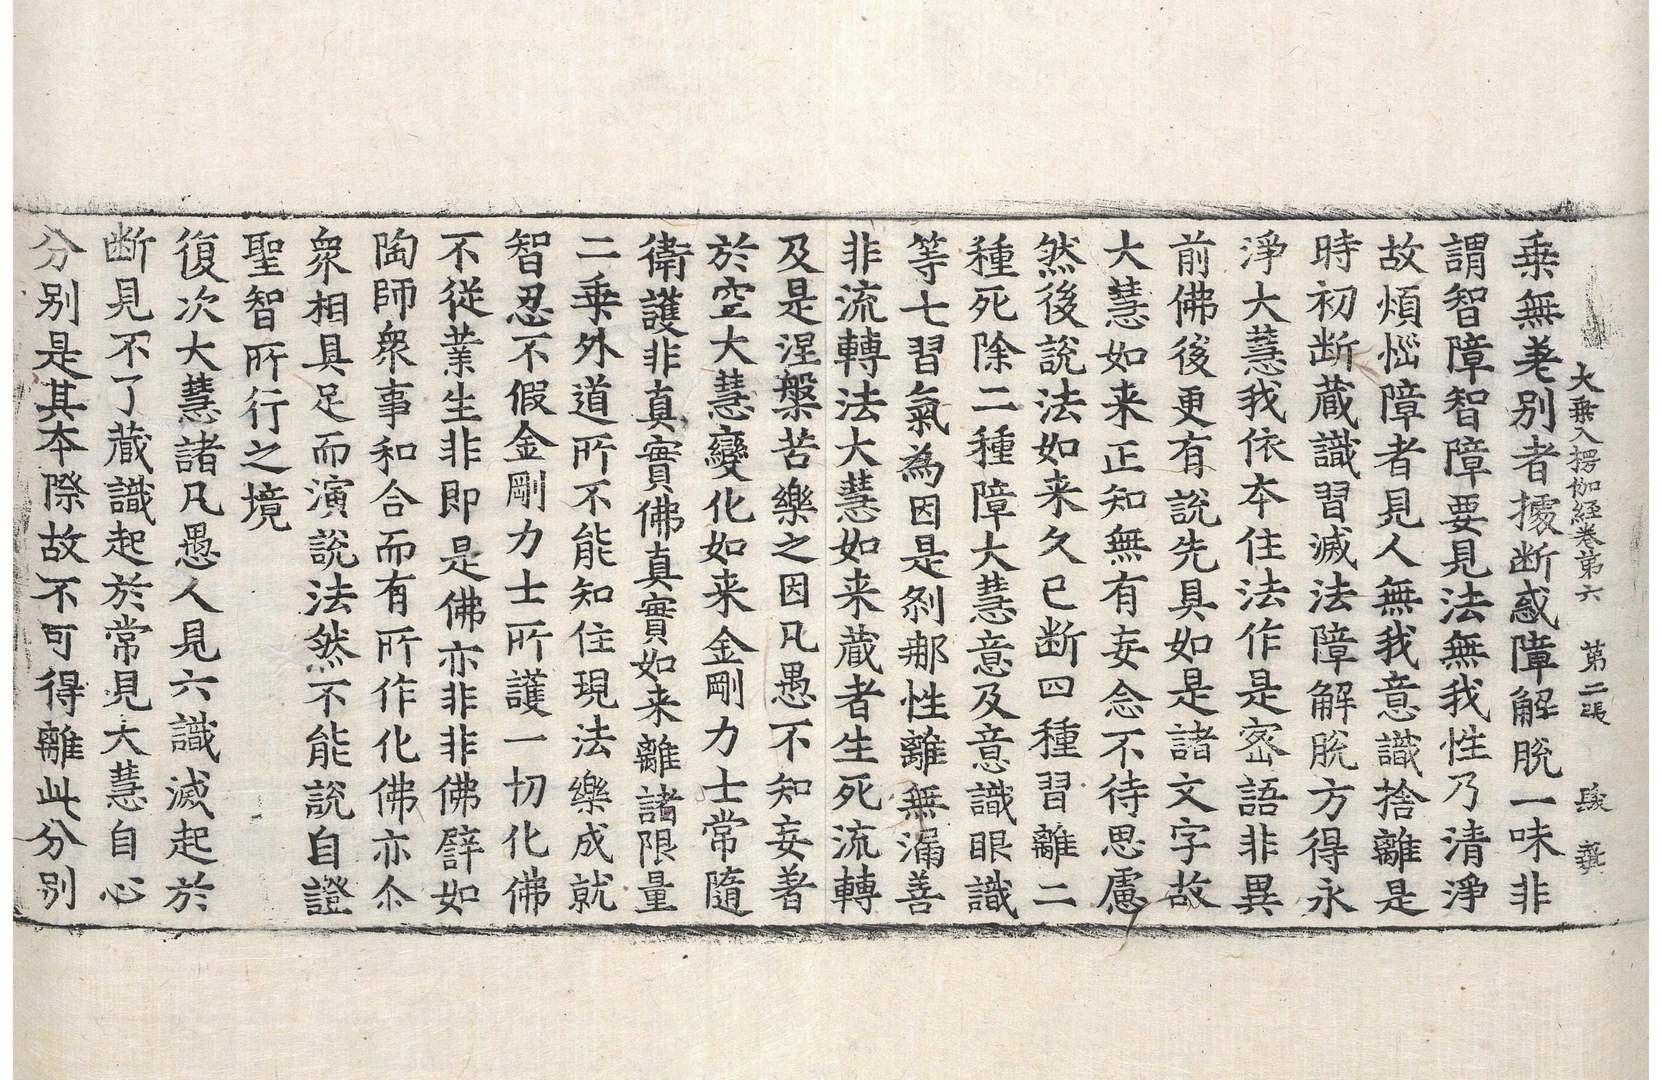 大乗入楞伽経卷第六　第二張
乗無差別者據断惑障解脫一味非
謂智障智障要見法無我性乃清淨
故煩惱障者見人無我意識捨離是
時初断蔵識習滅法障解脫方得永
淨大慧我依本住法作是密語非異
前佛後更有說先具如是諸文字故
大慧如来正知無有妄念不待思慮
然後說法如来久已断四種習離二
種死除二種障大慧意及意識眼識
等七習氣為因是刹那性離無漏善
非流轉法大慧如来蔵者生死流轉
及是涅槃苦樂之因凡愚不知妄著
於空大慧變化如来金剛力士常隨
衛護非真實佛真實如来離諸限量
二乗外道所不能知住現法樂成就
智忍不假金剛力士所護一切化佛
不從業生非即是佛亦非非佛譬如
陶師衆事和合而有所作化佛亦尒
衆相具足而演說法然不能說自證
聖智所行之境
復次大慧諸凡愚人見六識滅起於
断見不了蔵識起於常見大慧自心
分別是其本際故不可得離此分別